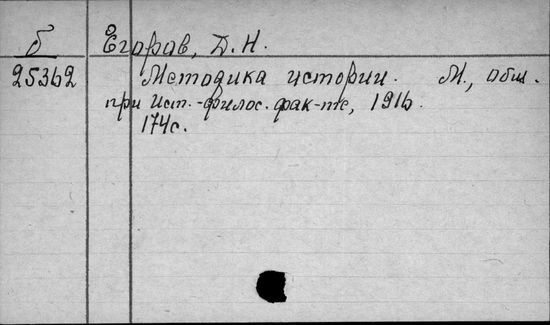 б Егоров, Д.Н.
25362 Методика истории. М., общ.
при Ист.-филос. фак-те, 1916.
174с.